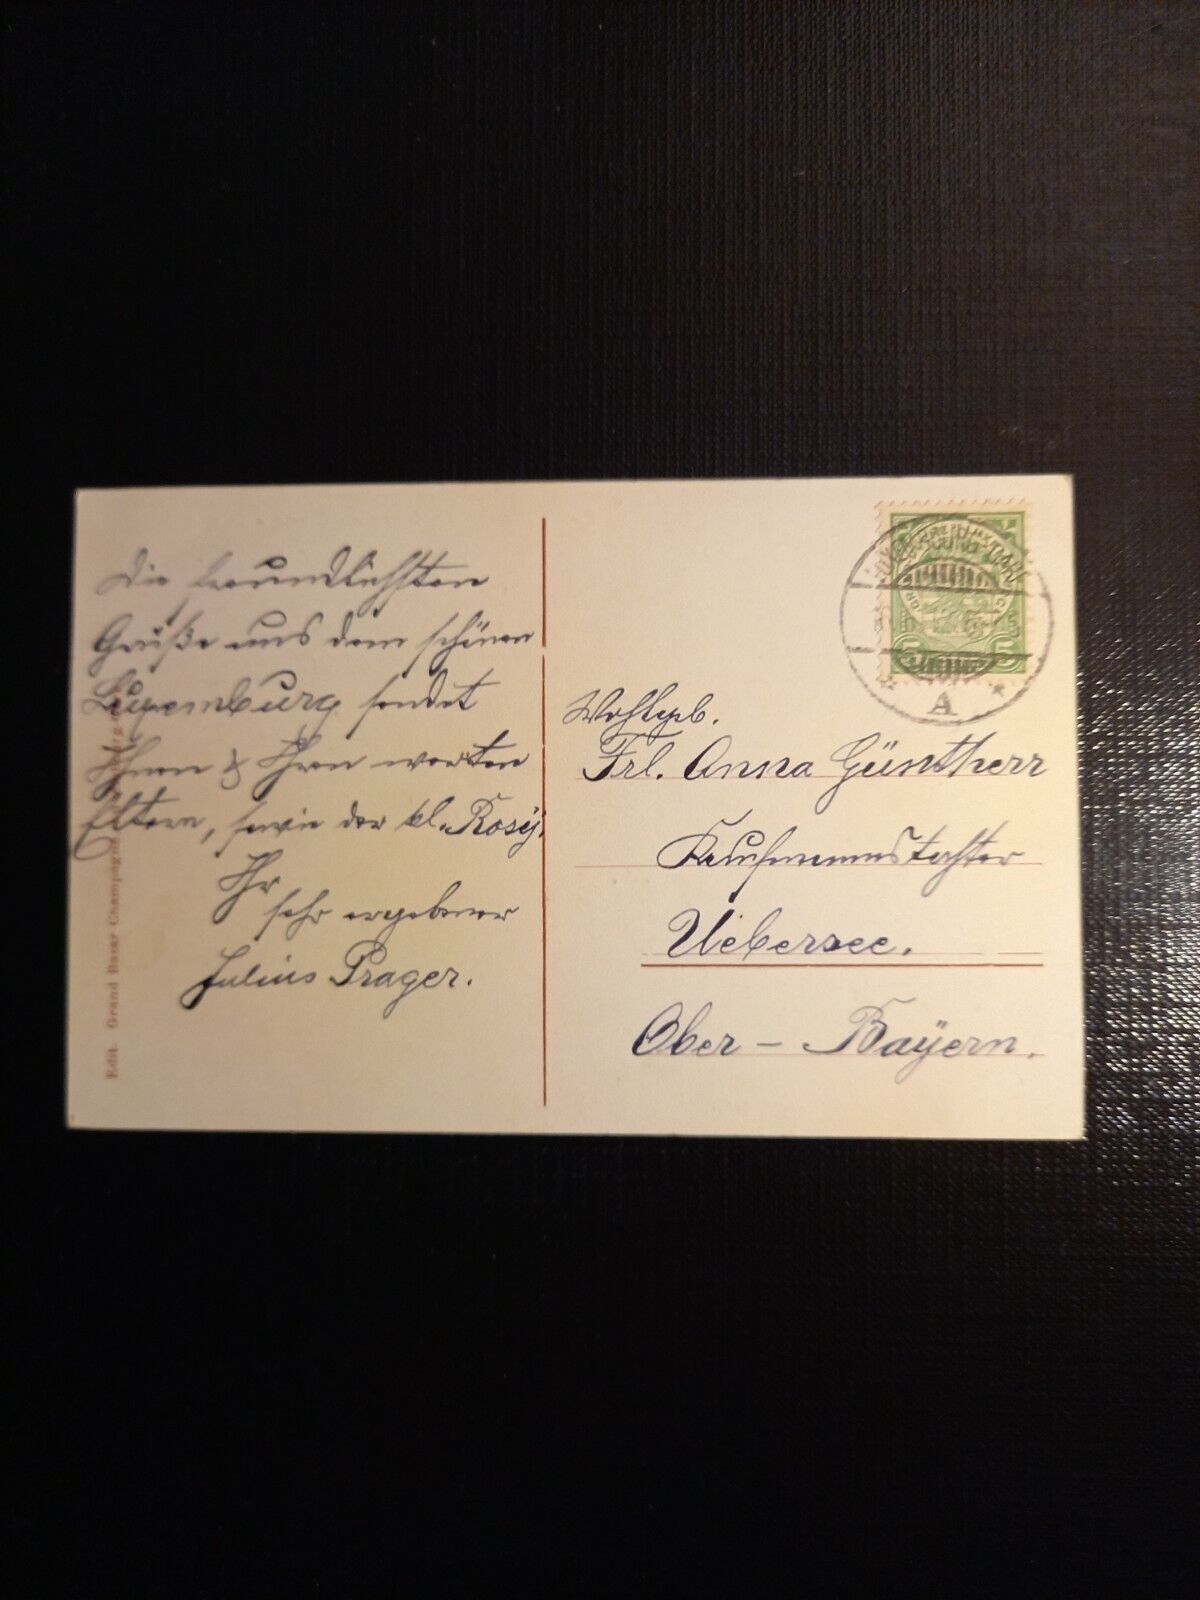 Die freundlichsten
Grüße aus dem schönen
Luxemburg sendet
Ihnen & Ihren werten
Eltern, sowie der kl. Rosy.
Ihr
sehr ergebener
Julius Prager.
Edit. Grand Bazar Champagne
Wohlgeb.
Frl. Anna Güntherr
Kaufmannstochter
Uebersee.
Ober - Bayern.
5
5
A